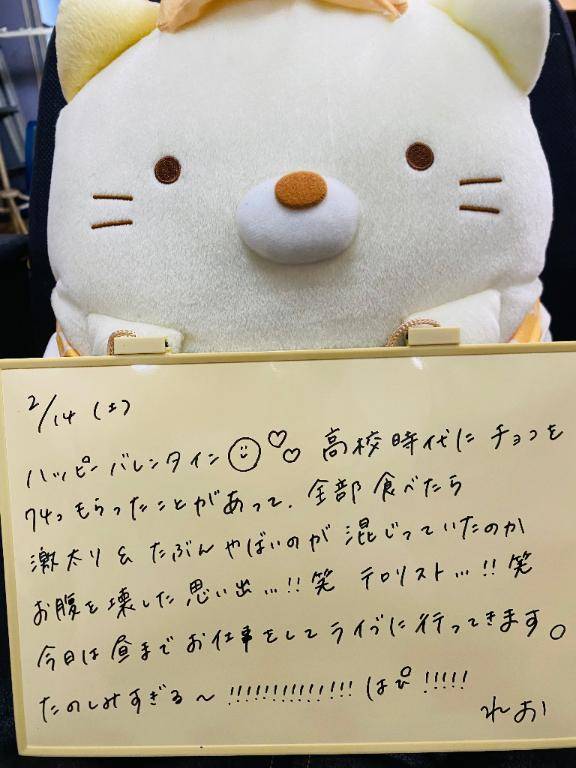 2/14 (土)
ハッピーバレンタイン 高校時代にチョコを
74つもらったことがあって、全部食べたら
激太り& たぶんやばいのが混じっていたのか
お腹を壊した思い出...!!笑 テロリスト...!!笑
今日は昼までお仕事をしてライブに行ってきます。
たのしみすぎる〜 !!!!!!!!!!!!! はぴ !!!!!
れお